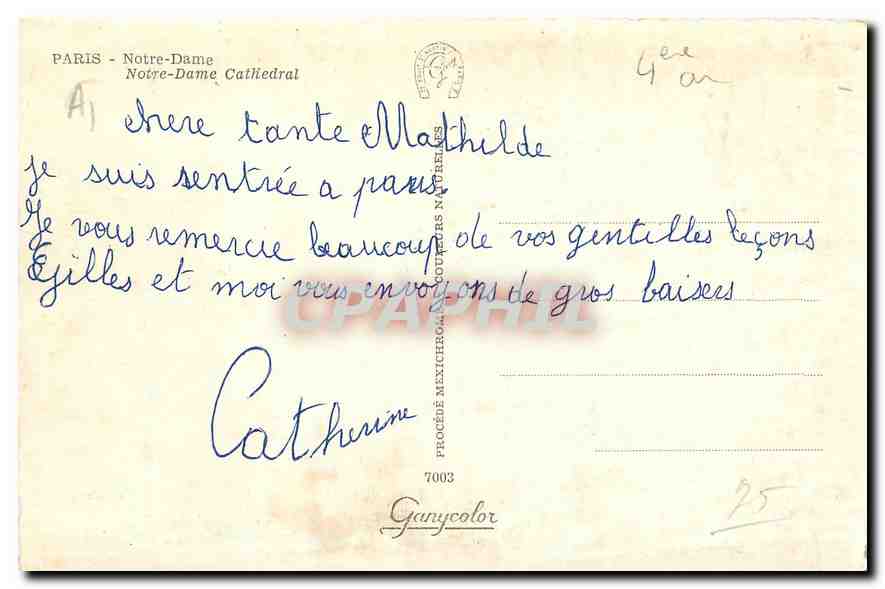 PARIS - Notre-Dame
Notre-Dame Cathedral
4ere
A1
chere tante Mathilde
je suis rentrée a paris.
Je vous remercie beaucoup de vos gentilles leçons
Gilles et moi vous envoyons de gros baisers
CPAPHIL
Catherine
PROCÉDÉ MEXICHROME COULEURS NATURELLES
7003
Ganycolor
25